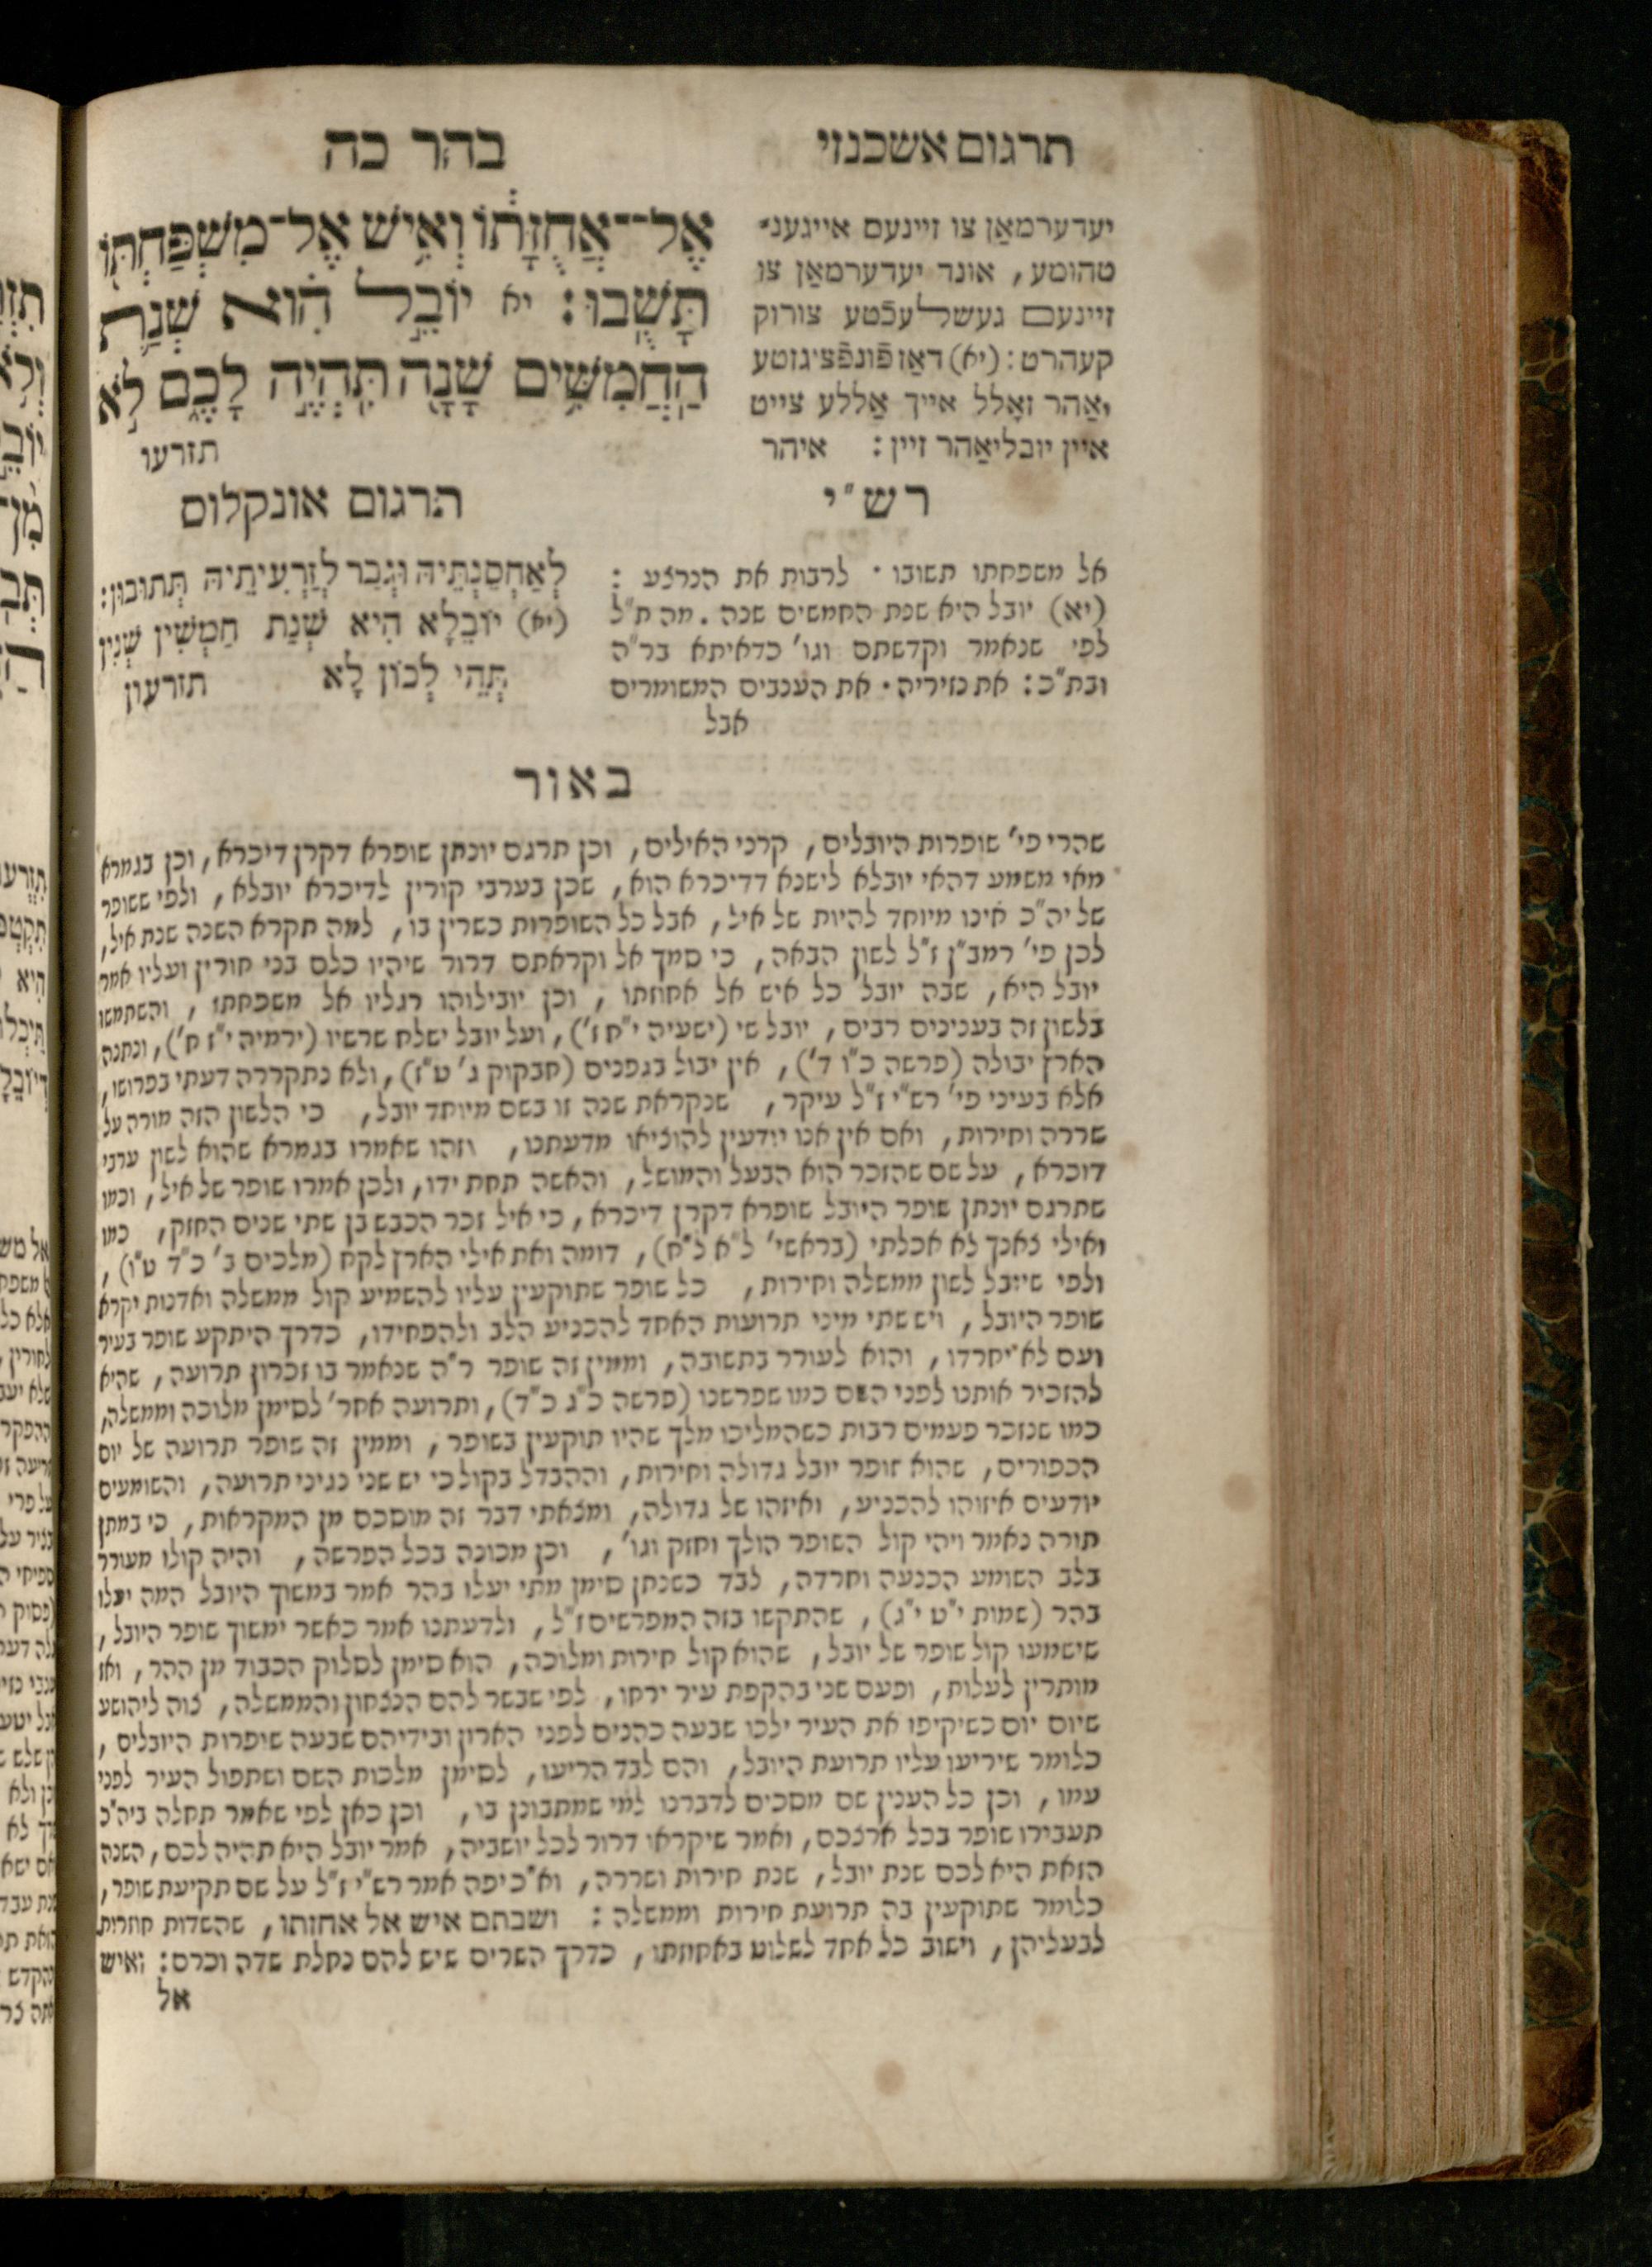 תרגום אשכנזי
בהר כה
יעדערמאַן צו זיינעם אייגענ־
טהומע, אונד יעדערמאַן צו
זיינעם געשלעכֿטע צורוק
קעהרט: (יא) דאַז פֿונפֿציגזטע
יאַהר זאָלל אייך אַללע צייט
איין יובליאַהר זיין: איהר
אֶל־אֲחֻזָּת֔וֹ וְאִ֥ישׁ אֶל־מִשְׁפַּחְתּ֖וֹ
תָּשֻֽׁבוּ: יא יוֹבֵ֣ל הִ֗וא שְׁנַ֛ת
הַֽחֲמִשִּׁ֥ים שָׁנָ֖ה תִּֽהְיֶ֣ה לָכֶ֑ם לֹ֣א
תזרעו
רש"י
אל משפחתו תשובו · לרבות את הנרצע :
(יא) יובל היא שנת החמשים שנה . מה ת"ל
לפי שנאמר וקדשתם וגו' כדאיתא בר"ה
ובת"כ: את נזיריה · את הענבים המשומרים
אבל
תרגום אונקלוס
לְאַחְסַנְתֵּיהּ וּגְבַר לְזַרְעִיתֵיהּ תְּתוּבוּן:
(יא) יוֹבֵלָא הִיא שְׁנַת חַמְשִׁין שְׁנִין
תְּהֵי לְכוֹן לָא תזרעון
באור
שהרי פי' שופרות היובלים, קרני האילים, וכן תרגם יונתן שופרא דקרן דיכרא, וכן בגמרא
מאי משמע דהאי יובלא לישנא דדיכרא הוא, שכן בערבי קורין לדיכרא יובלא, ולפי ששופר
של יה"כ אינו מיוחד להיות של איל, אבל כל השופרות כשרין בו, למה תקרא השנה שנת איל,
לכן פי' רמב"ן ז"ל לשון הבאה, כי סמך אל וקראתם דרור שיהיו כלם בני חורין ועליו אמר
יובל היא, שבה יובל כל איש אל אחוזתו, וכן יובילוהו רגליו אל משפחתו, והשתמשו
בלשון זה בענינים רבים, יובל שי (ישעיה י"ח ז'), ועל יובל ישלח שרשיו (ירמיה י"ז ח'), ונתנה
הארץ יבולה (פרשה כ"ו ד'), אין יבול בגפנים (חבקוק ג' ט"ז), ולא נתקררה דעתי בפרושו,
אלא בעיני פי' רש"י ז"ל עיקר, שנקראת שנה זו בשם מיוחד יובל, כי הלשון הזה מורה על
שררה וחירות, ואם אין אנו יודעין להוציאו מדעתנו, וזהו שאמרו בגמרא שהוא לשון ערבי
דוכרא, על שם שהזכר הוא הבעל והמושל, והאשה תחת ידו, ולכן אמרו שופר של איל, וכמו
שתרגם יונתן שופר היובל שופרא דקרן דיכרא, כי איל זכר הכבש בן שתי שנים החזק, כמו
ואילי צאנך לא אכלתי (בראשי' ל"א ל"ח), דומה ואת אילי הארץ לקח (מלכים ב' כ"ד ט"ו),
ולפי שיובל לשון ממשלה וחירות, כל שופר שתוקעין עליו להשמיע קול ממשלה ואדנות יקרא
שופר היובל, ויש שתי מיני תרועות האחד להכניע הלב ולהפחידו, כדרך היתקע שופר בעיר
ועם לא יחרדו, והוא לעורר בתשובה, וממין זה שופר ר"ה שנאמר בו זכרון תרועה, שהיא
להזכיר אותנו לפני השם כמו שפרשנו (פרשה כ"ג כ"ד), ותרועה אחר' לסימן מלוכה וממשלה,
כמו שנזכר פעמים רבות כשהמליכו מלך שהיו תוקעין בשופר, וממין זה שופר תרועה של יום
הכפורים, שהוא שופר יובל גדולה וחירות, וההבדל בקול כי יש שני נגיני תרועה, והשומעים
יודעים איזוהו להכניע, ואיזהו של גדולה, ומצאתי דבר זה מוסכם מן המקראות, כי במתן
תורה נאמר ויהי קול השופר הולך וחזק וגו', וכן מכונה בכל הפרשה, והיה קולו מעורר
בלב השומע הכנעה וחרדה, לבד כשנתן סימן מתי יעלו בהר אמר במשוך היובל המה יעלו
בהר (שמות י"ט י"ג), שהתקשו בזה המפרשים ז"ל, ולדעתנו אמר כאשר ימשוך שופר היובל,
שישמעו קול שופר של יובל, שהוא קול חירות ומלוכה, הוא סימן לסלוק הכבוד מן ההר, ואז
מותרין לעלות, ופעם שני בהקפת עיר יריחו, לפי שבשר להם הנצחון והממשלה, צוה ליהושע
שיום יום כשיקיפו את העיר ילכו שבעה כהנים לפני הארון ובידיהם שבעה שופרות היובלים,
כלומר שיריעו עליו תרועת היובל, והם לבד הריעו, לסימן מלכות השם ושתפול העיר לפני
עמו, וכן כל הענין שם מסכים לדברנו למי שמתבונן בו, וכן כאן לפי שאמר תחלה ביה"כ
תעבירו שופר בכל ארצכם, ואמר שיקראו דרור לכל יושביה, אמר יובל היא תהיה לכם, השנה
הזאת היא לכם שנת יובל, שנת חירות ושררה, וא"כ יפה אמר רש"י ז"ל על שם תקיעת שופר,
כלומר שתוקעין בה תרועת חירות וממשלה: ושבתם איש אל אחזתו, שהשדות חוזרות
לבעליהן, וישוב כל אחד לשלוט באחוזתו, כדרך השרים שיש להם נחלת שדה וכרם: ואיש
אל